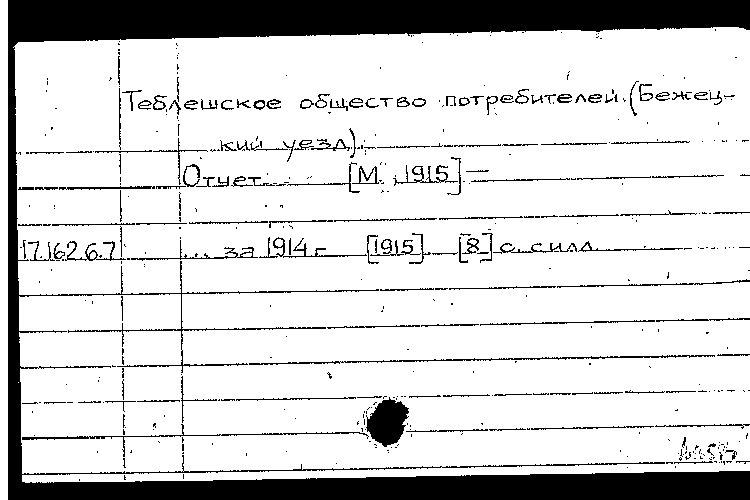 Теблешское общество потребителей. (Бежец-
кий уезд).
Отчет [М., 1915] —
17.162.6.7 ... за 1914 г. [1915]. [8] с. илл.